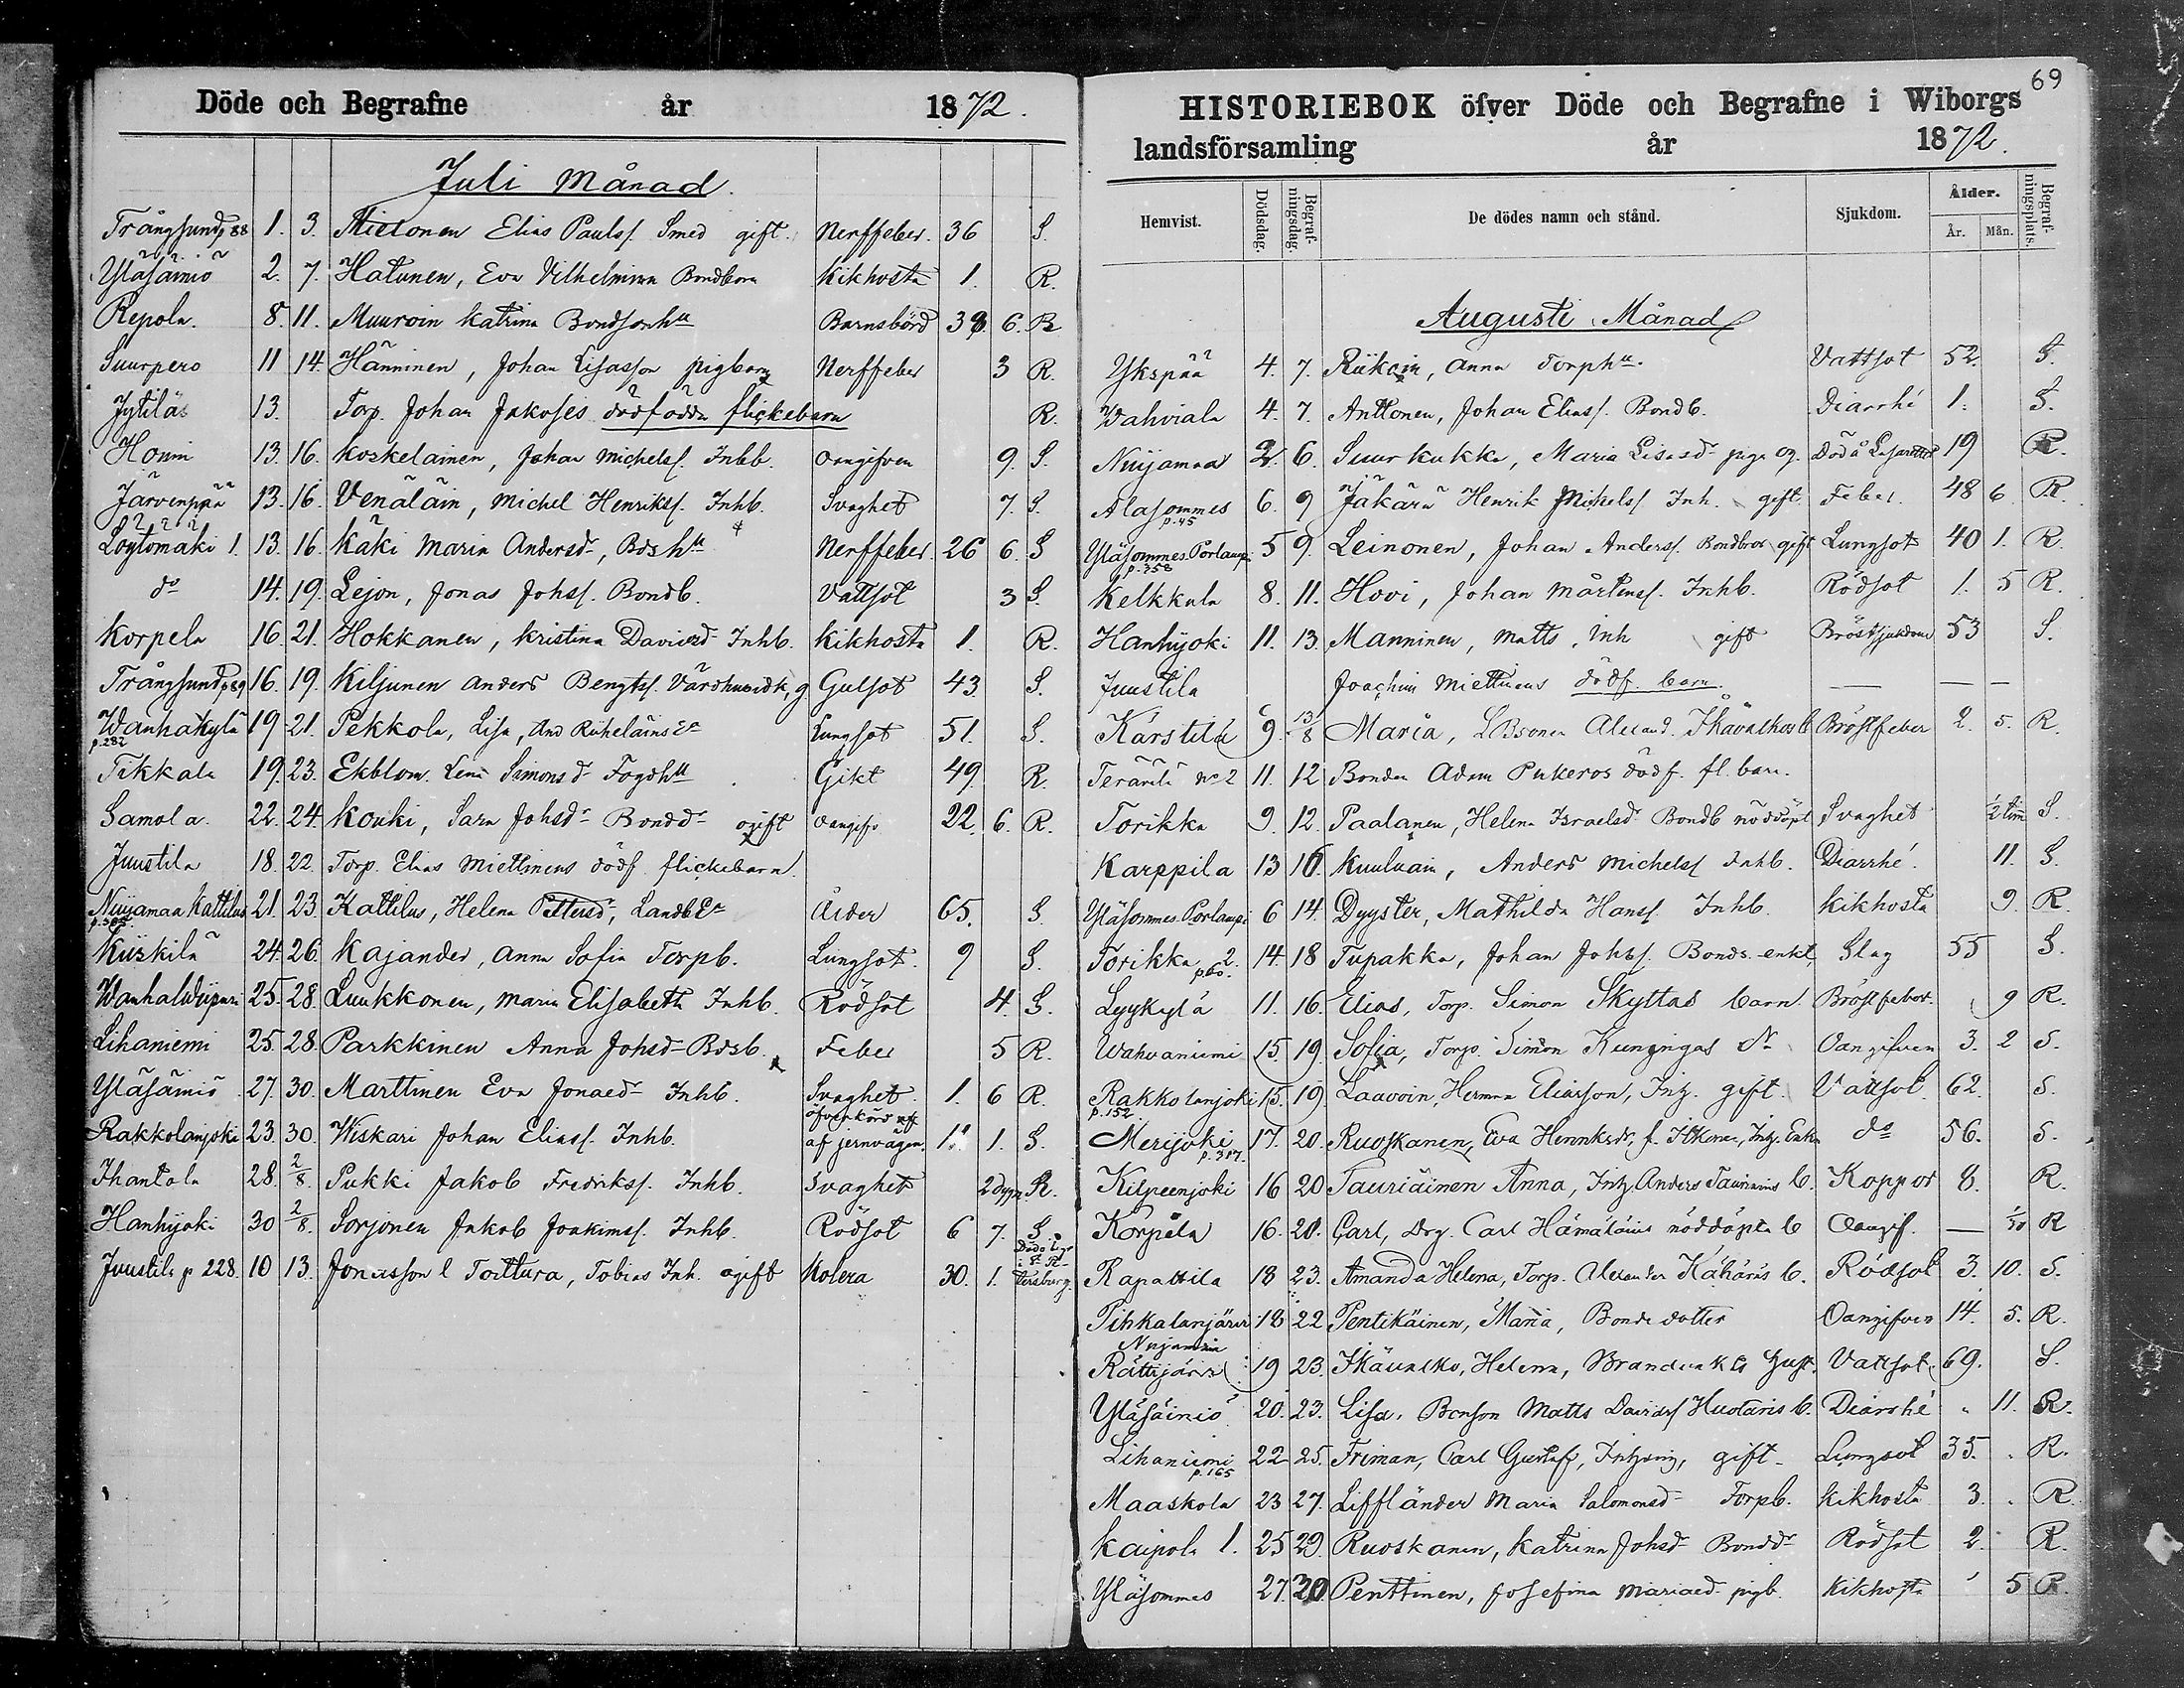 Döde och Begrafne år 1872.
Juli Månad.
Trångsund p 88 1. 3. Mielonen Elias Paulss. Smed gift. Nerffeber. 36 S.
Yläsäiniö 2. 7. Hatunen, Eva Vilhelmina Bondbarn Kikhosta 1. R.
Repola. 8. 11. Muuroin Katrina Bondsonhu Barnsbörd 38. 6. R
Suurpero 11 14. Hänninen, Johan Lisasson pigbarn Nerffeber 3 R.
Jytilä 13. Torp. Johan Jakoses dödfödda flickebarn R.
Houni 13. 16. Koskelainen, Johan Michelss. Inhb. oangifven 9. S.
Järvenpää 13. 16. Venäläin, Michel Henrikss. Inhb. Svaghet 7. S.
Löytömäki 1. 13. 16. Käki Maria Andersd, Bdshu Nerffeber. 26 6. S
do 14. 19. Lejon, Jonas Johss. Bondb. Vattsot 3 S.
Korpela 16. 21. Hokkanen, Kristina Davidsd Inhb. Kikhosta 1. R.
Trångsund p 89 16. 19. Kiljunen Anders Bengtss. Värdhusidk, g Gulsot 43. S.
Wanhakylä p. 282 19 21. Pekkola, Lisa, And Riiheläins Ea Lungsot 51. S.
Tikkala 19. 23. Ekblom. Lena Simonsd Fogdhu Gikt 49. R.
Samola. 22. 24. Kouki, Sara Johsd Bondd ogift oangifv 22. 6. R.
Juustila 18. 22 Torp. Elias Miettinens dödf. flickebarn.
Nuijamaa Kattilus 21. 23. Kattilus, Helena Pettersd, Landb Ea Ålder 65. S
Kiiskilä 24. 26. Kajander, Anna Sofia Torpb. Lungsot. 9 S.
Wanhalwiipuri 25. 28. Luukkonen, Maria Elisabeth Inhb. Rödsot 4. S.
Lihaniemi 25. 28. Parkkinen Anna Johsd Bdsb. Feber 5 R.
Yläsäiniö 27. 30. Marttinen Eva Jonaed Inhb. Svaghet. 1. 6 R.
Rakkolanjoki 23. 30. Wiskari Johan Eliass. Inhb. öfverkörd af jernvägen. 1. 1. S.
Ihantola 28. 2/8. Pukki Jakob Fredrikss. Inhb. Svaghet 2 dygn R.
Hanhijoki 30 2/8. Sorjonen Jakob Joakimss. Inhb. Rödsot 6 7. S.
Juustila p 228. 10 13. Jonasson l Toittura, Tobias Inh. ogift Kolera 30. 1.
69
HISTORIEBOK öfver Döde och Begrafne i Wiborgs
landsförsamling år 1872.
Hemvist. Dödsdag. Begrafningsdag. De dödes namn och stånd. Sjukdom. Ålder. År. Mån. Begrafningsplats.
Augusti Månad
Ykspää 4. 7. Riikoin, Anna Torphu. Vattsot 52. S.
Wahviala 4. 7. Anttonen, Johan Eliass. Bondb. Diarrhé 1. S.
Nuijamaa 2. 6. Suurkukka, Maria Lisasd piga og. Död å Lasarettet 19 R.
Alasommes p. 45 6. 9 Jäkärä Henrik Michelss. Inh. gift Feber. 48 6. R.
Yläsommes. Porlamp. p. 358 5 9. Leinonen, Johan Anderss. Bondbror gift Lungsot 40 1. R.
Kelkkala 8. 11. Hovi, Johan Mårtenss. Inhb. Rödsot 1. 5 R.
Hanhijoki 11. 13. Manninen, Matts. Inh gift Bröstsjukdom 53 S.
Juustila Joachim Miettinens dödf. barn. — — —
Kärstilä 9. 13/8 Maria, LBsonen Alexand. Ikävalkos b Bröstfeber 2. 5. R.
Terävilä No 2 11. 12 Bonden Adam Pukeros dödf. fl. barn.
Torikka 9. 12. Paalanen, Helena Israelsd Bondb nöddöpt Svaghet 1/2 tim S.
Karppila 13 16. Kuuluain, Anders Michelss Inhb. Diarrhé. 11. S.
Yläsommes. Porlamp. 6 14. Dyyster, Mathilda Hanss. Inhb. Kikhosta 9. R.
Torikka 2. p60. 14. 18 Tupakka, Johan Johss. Bonds. enkl, Slag 55 S.
Lyykylä 11. 16. Elias, Torp. Simon Skyttas barn. Bröstfeber. 9 R.
Wahvaniemi 15. 19. Sofia, Torp. Simon Kuningas dr Oangifven 3. 2 S.
Rakkolanjoki p. 152 15. 19. Laavoin, Herman Eliasson, Inh. gift. Vattsot 62. S.
Merijoki p. 317. 17. 20. Ruoskanen, Eva Henriksdr, f. Itkonen, Inh. Enka do 56. S.
Kilpeenjoki 16 20 Tauriäinen Anna, Inh. Anders Tauriains b. Koppor 8. R.
Korpela 16. 20. Carl, Drg. Carl Hämäläins nöddöpta b Oangif. — R
Rapattila 18 23. Amanda Helena, Torp. Alexander Kähäräs b. Rödsot 3. 10. S.
Pihkalanjärvi 18 22 Pentikäinen, Maria, Bonde dotter Oangifven 14. 5. R.
Nuijamaa
Rättijärvi 19 23. Ikävalko, Helena, Vattsot 69. S.
Yläsäiniö 20. 23. Lisa. Bonson Matts Davidss Huotaris b. Diarrhé 11. R.
Lihaniemi p. 165 22 25. Friman, Carl Gustaf, Inhysing, gift. Lungsot 35. R.
Maaskola 23 27. Liffländer Maria Salomonsd Torpb. Kikhosta 3. R.
Kaipola 1. 25 29. Ruoskanen, Katrina Johsd Bondd Rödsot 2. R.
Yläsommes 27. 30 Penttinen, Josefina Mariaed pigb. Kikhosta 5 R.